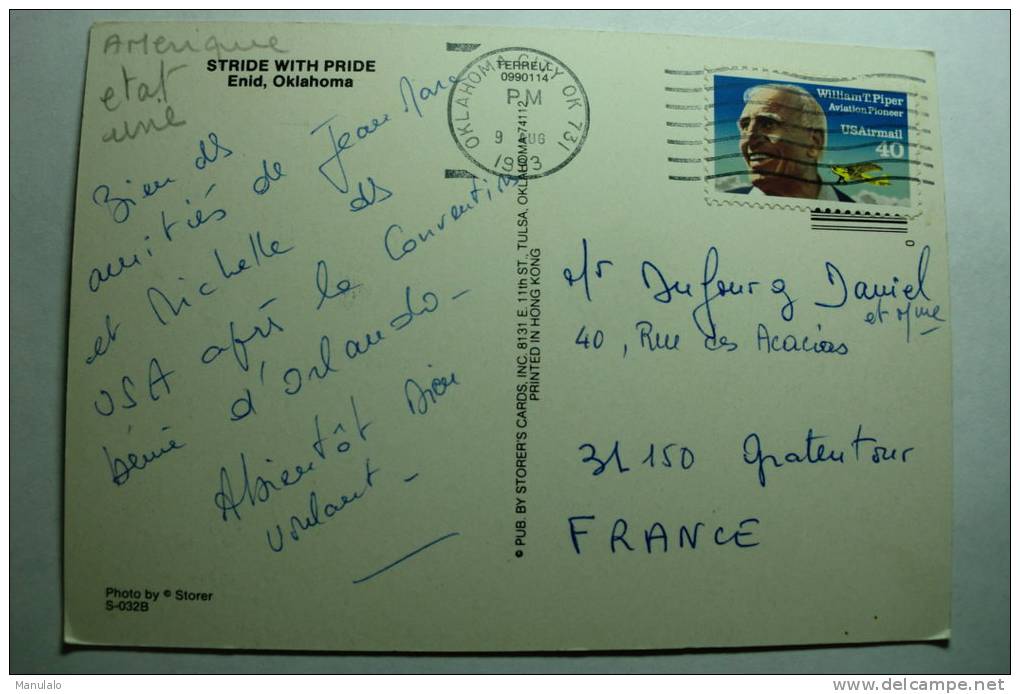 Amérique
etat
unié
STRIDE WITH PRIDE
Enid, Oklahoma
Bien ds
amitiés de Jean Marc
et Michelle ds
USA après la Convention
bénie d'Orlando -
Abientôt Dieu
voulant -
Photo by © Storer
S-032B
© PUB. BY STORER'S CARDS, INC. 8131 E. 11th ST., TULSA, OKLAHOMA 74112
PRINTED IN HONG KONG
TERRELL
0990114
OKLAHOMA CITY OK 731
PM
9 AUG
1993
William T. Piper
Aviation Pioneer
USAirmail
40
0
Dufourg Daniel
et Mme
40, Rue des Acacias
31 150 Gratentour
FRANCE
Manulalo
www.delcampe.net